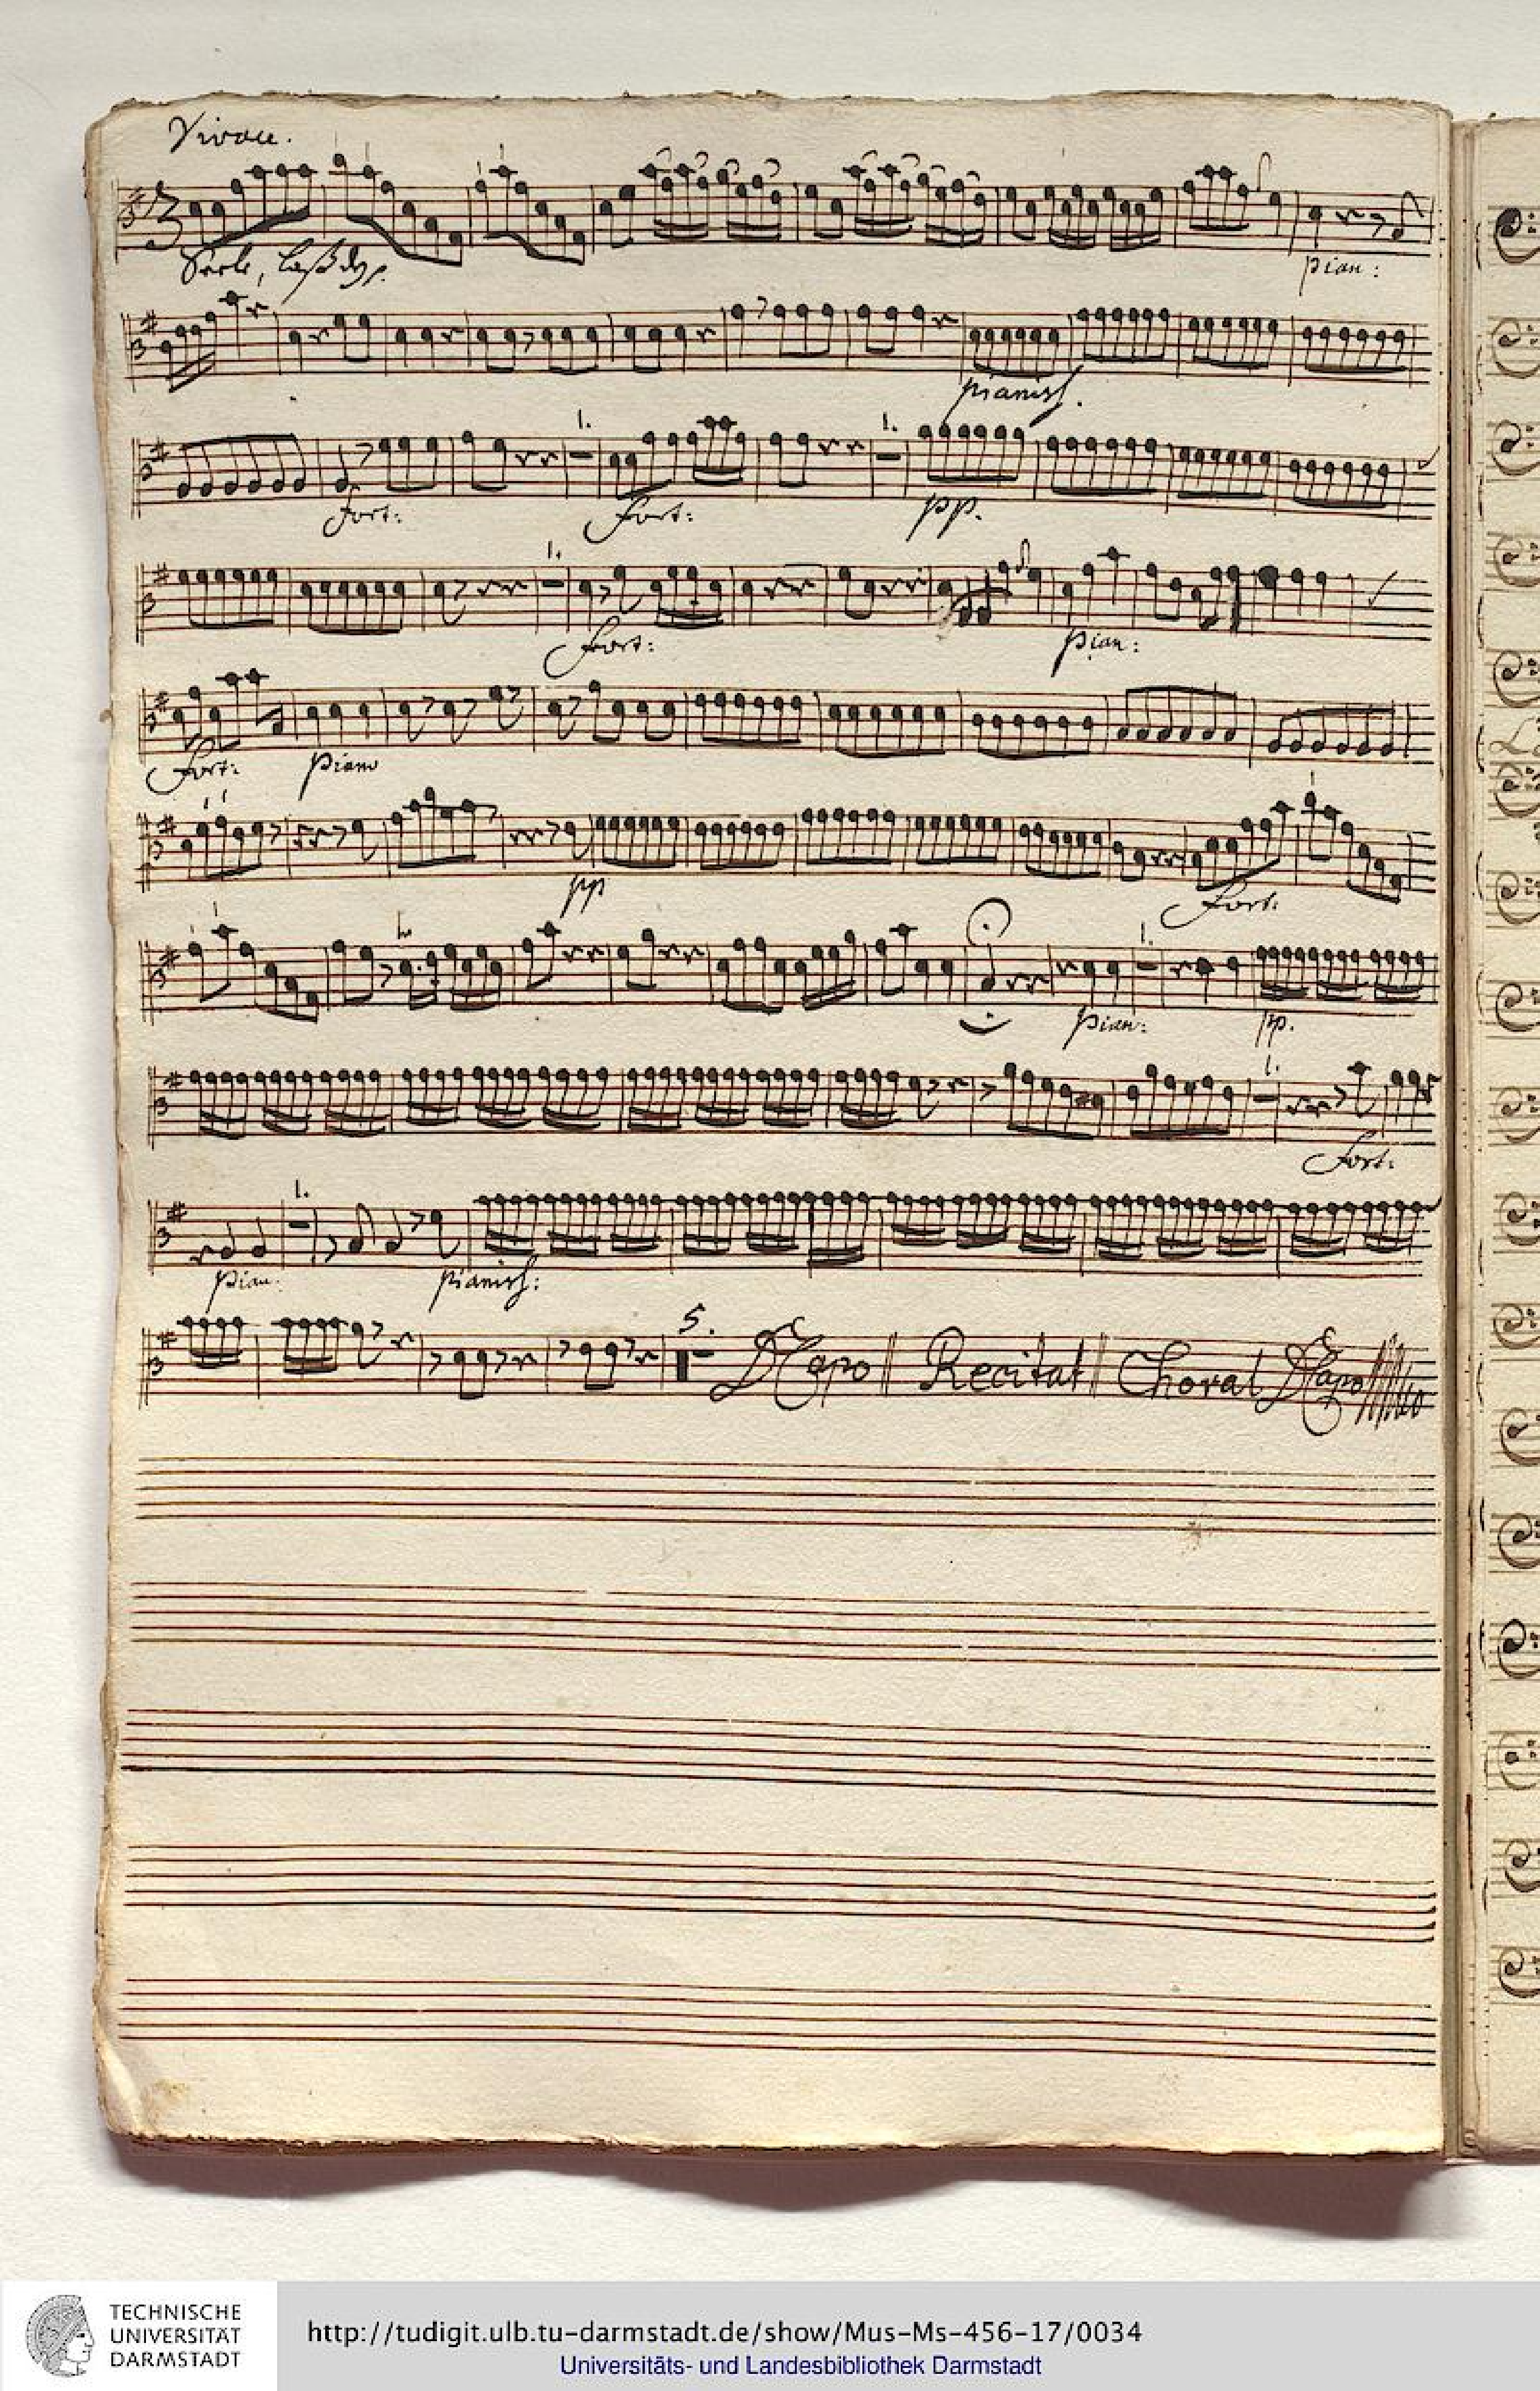 Vivace.
3
Seele, laß dz.
pian:
pianiss.
1. 1.
fort: fort: pp.
1.
fort: pian:
fort: piano
pp fort:
tr 1.
pian: pp.
1.
fort:
1.
pian: pianiss:
5.
D Capo Recitat Choral D Capo
TECHNISCHE
UNIVERSITÄT
DARMSTADT
http://tudigit.ulb.tu-darmstadt.de/show/Mus-Ms-456-17/0034
Universitäts- und Landesbibliothek Darmstadt